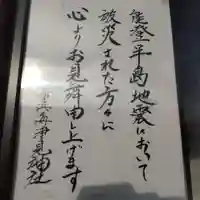 能登半島地震において
被災された方々に
心よりお見舞申し上げます
海津見神社